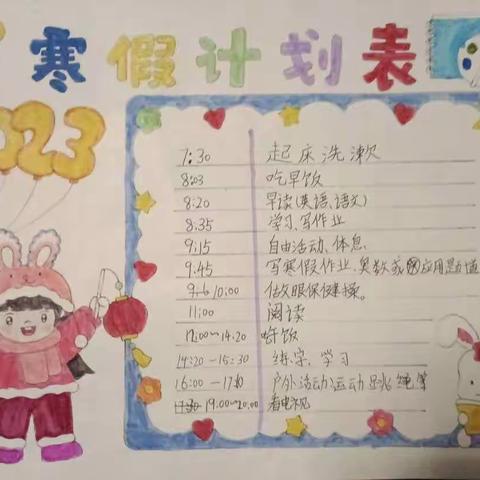 寒假计划表
2023
7:30 起床洗漱
8:03 吃早饭
8:20 早读(英语、语文)
8:35 学习、写作业
9:15 自由活动、休息
9:45 写寒假作业、奥数或应用题
10:00 做眼保健操。
11:00 阅读
12:00~14:20 吃饭
14:20-15:30 练字、学习
16:00-17:30 户外活动运动跳绳等
19:00~20:00 看电视